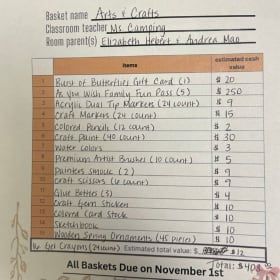 Basket name Arts & Crafts
Classroom teacher Ms. Camping
Room parent(s) Elizabeth Hebert & Andrea Mao
Items estimated cash value
1 Burst of Butterflies Gift Card (1) $ 20
2 As You Wish Family Fun Pass (5) $ 250
3 Acrylic Dual Tip Markers (24 count) $ 9
4 Craft Markers (24 count) $ 15
5 Colored Pencils (12 count) $ 2
6 Craft Paint (40 count) $ 30
7 Water Colors $ 3
8 Premium Artist Brushes (10 count) $ 5
9 Painters Smock (2) $ 9
10 Craft Scissors (6 count) $ 9
11 Glue Bottles (3) $ 4
12 Craft Gem Stickers $ 10
13 Colored Card Stock $ 10
14 Sketchbook $ 10
15 Wooden Spring Ornaments (45 pieces) $ 10
16. Gel Crayons (24 count) Estimated total value: $ $12
Total: $408
All Baskets Due on November 1st